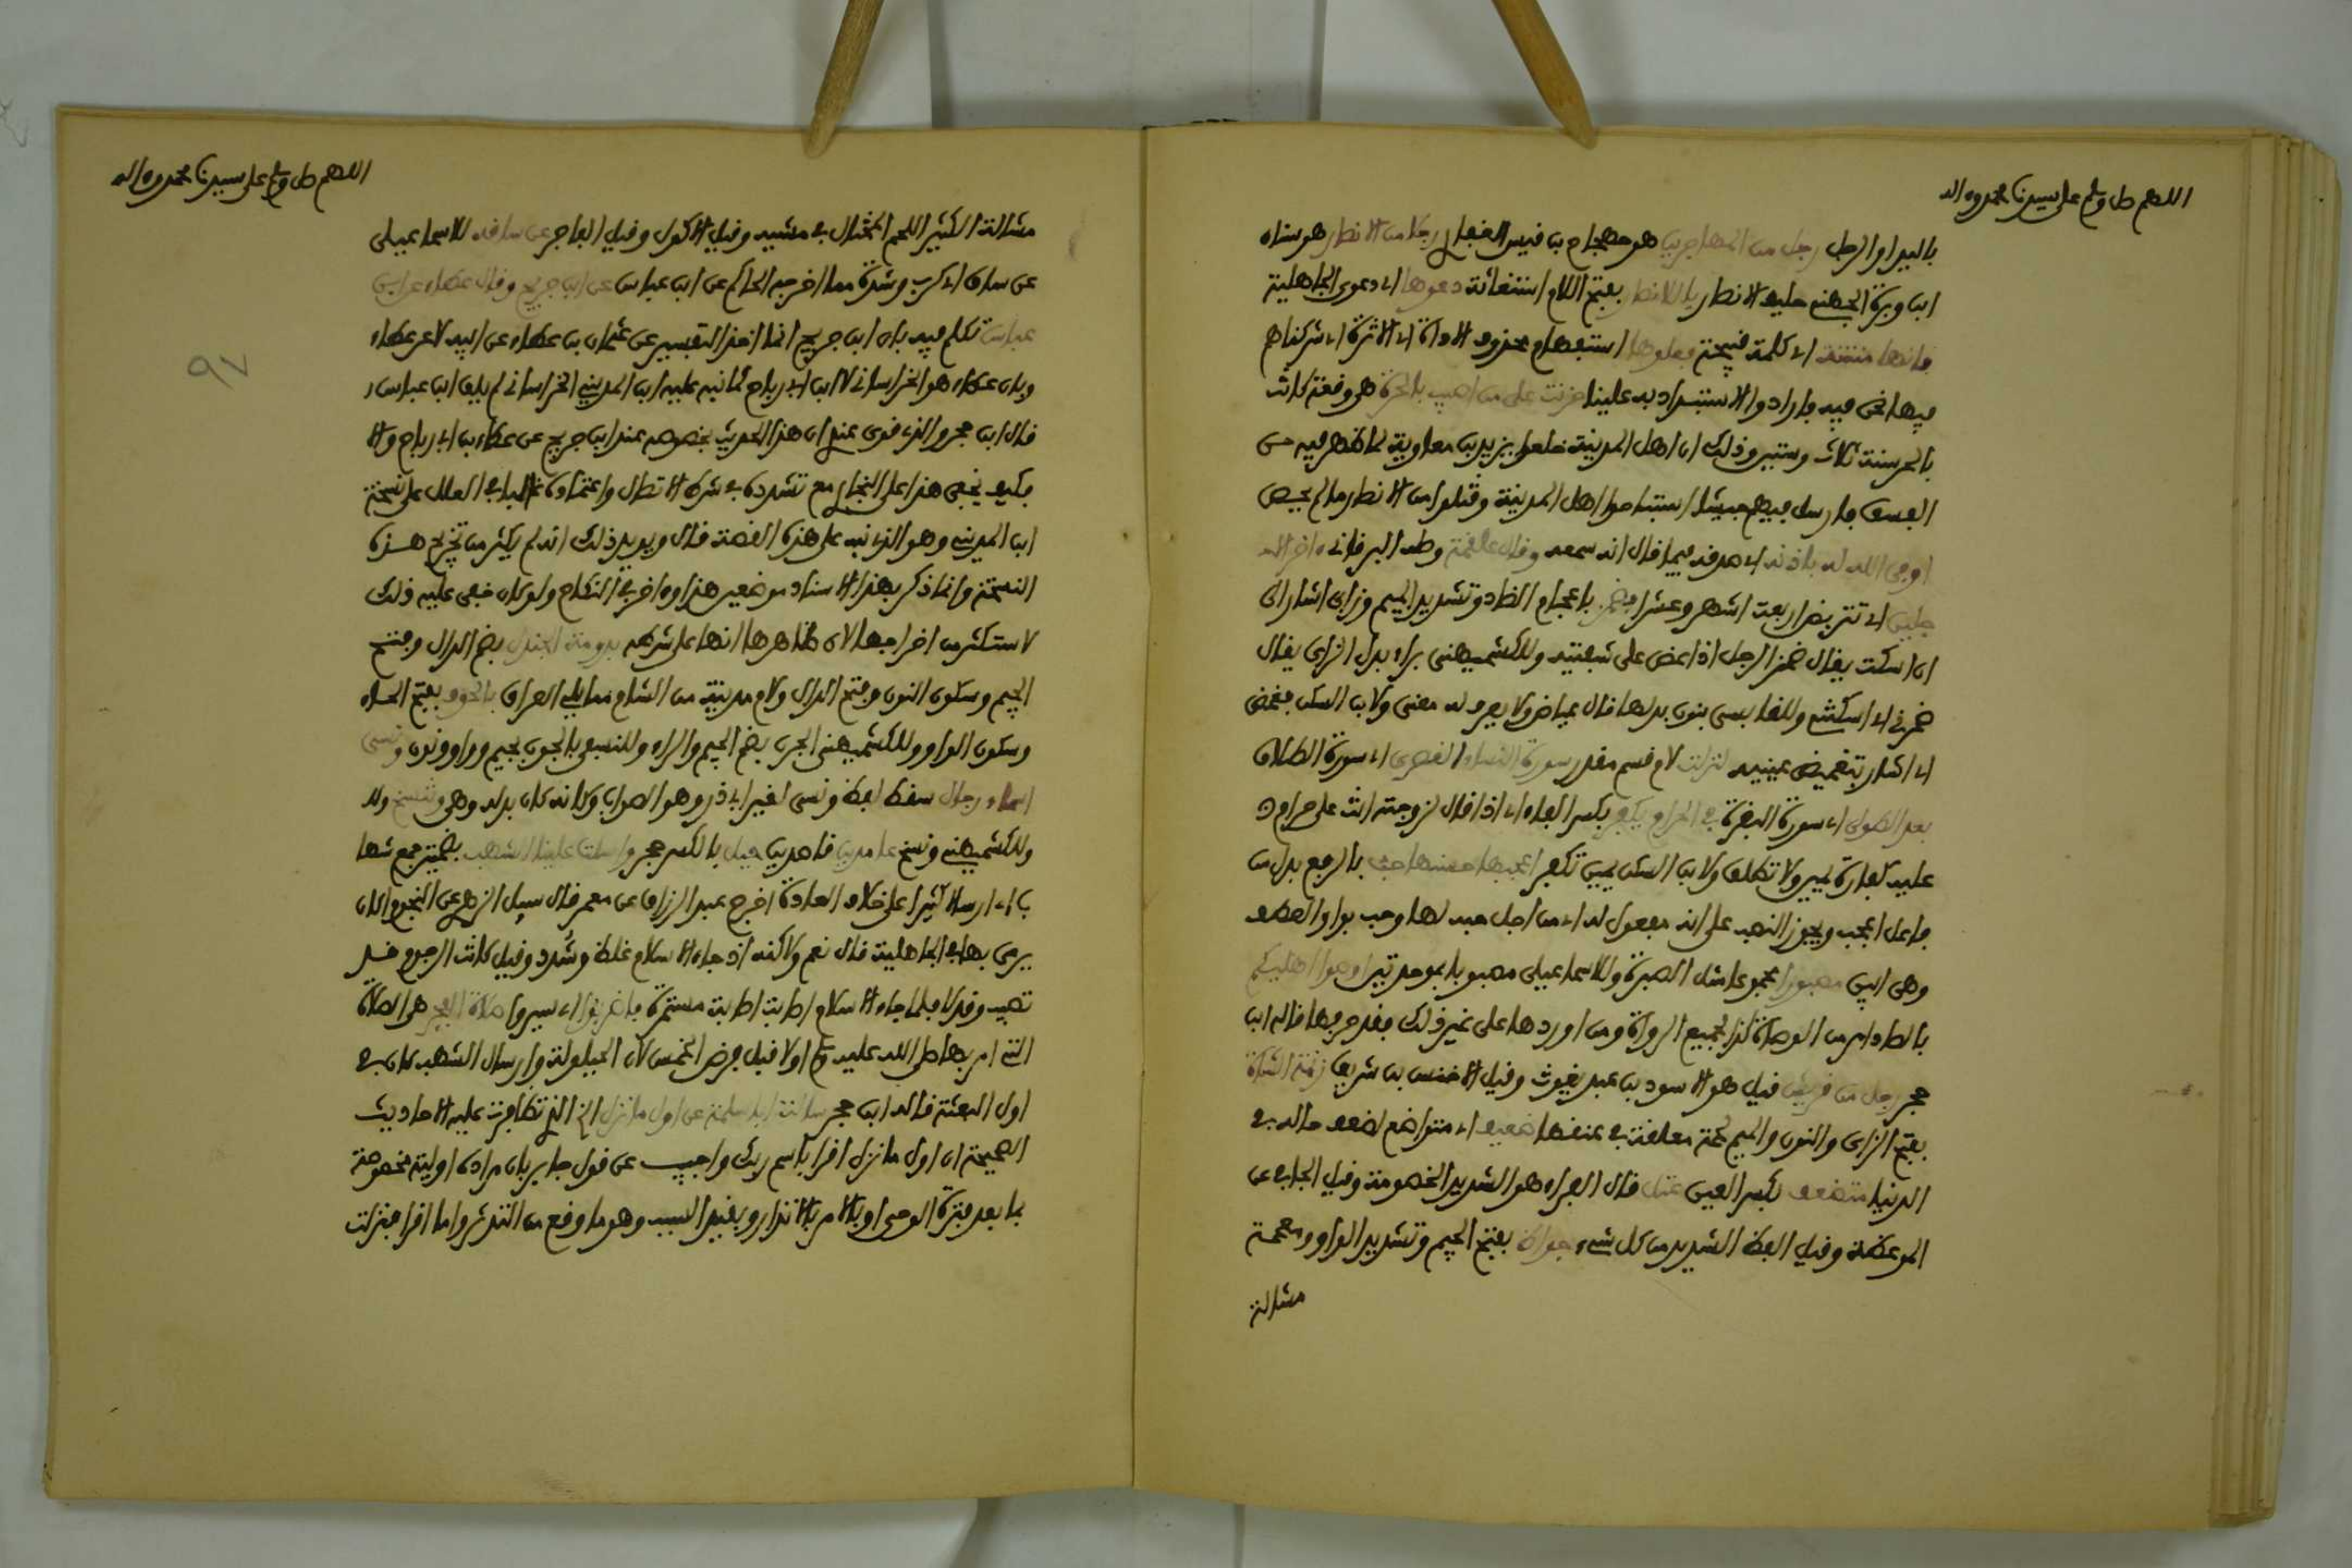 اللهم صل وسلم على سيدنا محمد وءاله
باليد او الرجل رجل من المهاجرين هو جهجاه بن قيس الغفاري رجلا من الانصار هو سنان
ابن وبرة الجهني حليف الانصار يا للانصار بفتح اللام استغاثة دعوها اي دعوى الجاهلية
فانها منتنة اي كلمة قبيحة فعلوها استفهام محذوف الاداة اي الاثرة اي شركناهم
فيها نحن فيه فارادوا الاستبداد به علينا حزنت على من اصيب بالحرة هي وقعة كانت
بالحر سنة ثلاث وستين وذلك ان اهل المدينة خلعوا يزيد بن معاوية لما ظهر فيه من
الفسق فارسل فيهم جيشا استباحوا اهل المدينة وقتلوا من الانصار ما لم يحص
اوفى الله له باذنه اي صدقه فيما قال انه سمعه وقال علقمة وصله البرقاني ءاخر الـ
جلين اي تتربص اربعة اشهر وعشرا فضمز باعجام الضاد وتشديد الميم وزاي اشار الى
ان اسكت يقال ضمز الرجل اذا عض على شفتيه وللكشميهني براء بدل الزاي يقال
ضمرني اي اسكتني وللقابسي بنون بدلها قال عياض ولا يعرف له معنى ولابن السكن فغمض
اي اشار بتغميض عينيه لنزلت لام قسم مقدر سورة النساء القصرى اي سورة الطلاق
بعد الطولى اي سورة البقرة في الحرام يكفر بكسر الفاء اي اذا قال لزوجته انت علي حرام
عليه كفارة يمين ولا تطلق ولابن السكن يمين تكفر اعجبها حسنها حب بالرفع بدل من
فاعل اعجب ويجوز النصب على انه مفعول له اي من اجل حبه لها وحب بواو العطف
وهي ابين مصبورا مجموعا مثل الصبرة وللاسماعيلي مصبوبا بموحدتين اوصوا اهليكم
بالصاد امر من الوصاة كذا لجميع الرواة ومن اوردها على غير ذلك فقد حرفها قاله ابن
حجر رجل من قريش قيل هو الاسود بن عبد يغوث وقيل الاخنس بن شريق زنمة الشاة
بفتح الزاي والنون والميم لحمة معلقة في عنقها ضعيف اي متواضع لضعف حاله في
الدنيا متضعف بكسر العين عتل قال الفراء هو الشديد الخصومة وقيل الجافي عن
الموعظة وقيل الفظ الشديد من كل شيء جواظ بفتح الجيم وتشديد الواو ومعجمة
مشالة
اللهم صل وسلم على سيدنا محمد وءاله
97
مشالة الكثير اللحم المختال في مشيه وقيل الاكول وقيل الفاجر عن ساقه للاسماعيلي
عن ساق اي كرب وشدة مما اخرجه الحاكم عن ابن عباس عن ابن جريج وقال عطاء عن ابن
عباس تكلم فيه بان ابن جريج انما اخذ التفسير عن عثمان بن عطاء عن ابيه لا عن عطاء
وبان عطاء هو الخراساني لا ابن ابي رباح كما نبه عليه ابن المديني والخراساني لم يلق ابن عباس
قال ابن حجر والذي قوي عندي ان هذا الحديث بخصوصه عند ابن جريج عن عطاء بن ابي رباح والا
فكيف يخفى هذا على البخاري مع تشدده في شرط الاتصال واعتماده غالبا في العلل على شيخه
ابن المديني وهو الذي نبه على هذه القصة قال ويويد ذلك انه لم يكثر من تخريج هذه
النسخة وانما ذكر بهذا الاسناد موضعين هذا وءاخر في النكاح ولو كان خفي عليه ذلك
لاستكثر من اخراجها لان ظاهرها انها على شرطه بدومة الجندل بضم الدال وفتح
الجيم وسكون النون وفتح الدال ولام مدينة من الشام مما يلي العراق بالجوف بفتح الجـ
وسكون الواو وللكشميهني الجرف بضم الجيم والراء وللنسفي بالجون بجيم وواو ونون ونسر
اسماء رجال سقط لفظ ونسر لغير ابي ذر وهو الصواب وكانه كان بدله وهي وتنسخ ولـ
وللكشميهني ونسخ عامدين قاصدين حيل بالكسر حجر وارسلت علينا الشهب بضمتين جمع شها
ب اي ارسالا كثيرا على خلاف العادة اخرج عبد الرزاق عن معمر قال سيل الزهري عن النجوم اكان
يرمى بها في الجاهلية قال نعم ولاكنه اذ جاء الاسلام غلظ وشدد وقيل كانت الرجوم قد
تصيب وقد لا فلما جاء الاسلام اصابت اصابة مستمرة فاضربوا اي سيروا صلاة الفجر هي الصلاة
التي امر بها صلى الله عليه وسلم اولا قبل فرض الخمس لان الحيلولة وارسال الشهب كان في
اول البعثة قاله ابن حجر سالت ابا سلمة عن اول ما نزل الخ الذي تظافرت عليه الاحاديث
الصحيحة ان اول ما نزل اقرا باسم ربك واجيب عن قول جابر بان مراده اولية مخصوصة
بما بعد فترة الوحي او بالامر بالانذار وبقيد السبب وهو ما وقع من التدثر واما اقرا فنزلت